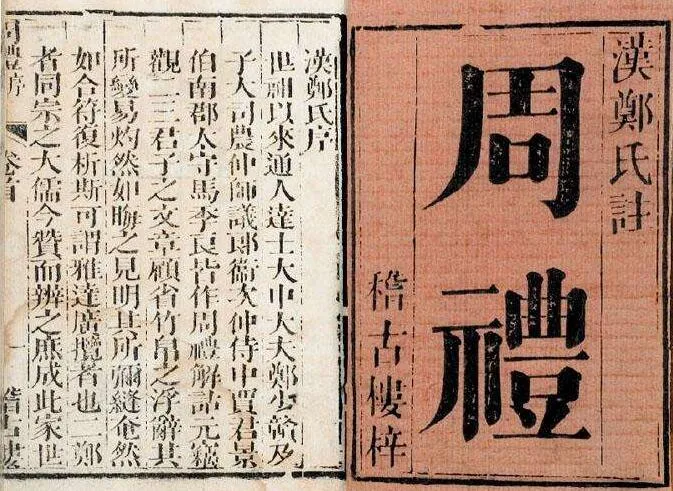 漢鄭氏註
周禮
稽古樓梓
漢鄭氏序
世祖以來通人達士大中大夫鄭少贛及
子大司農仲師議郎衛次仲侍中賈君景
伯南郡太守馬季長皆作周禮解詁元竊
觀二三君子之文章顧省竹帛之浮辭其
所變易灼然如晦之見明其所彌縫奄然
如合符復析斯可謂雅達廣攬者也二鄭
者同宗之大儒今贊而辨之庶成此家世
周禮序
卷首
一
稽古樓